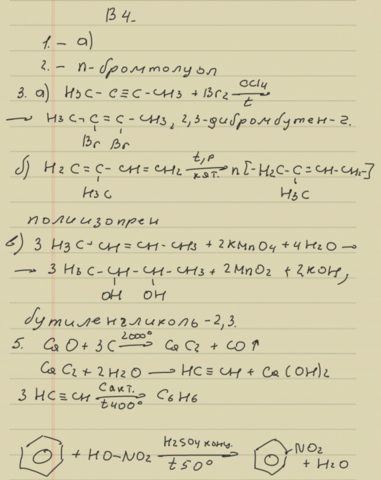 В 4.
1. – а)
2. – п-бромтолуол
3. а) H₃C – C ≡ C – CH₃ + Br₂ CCl₄ t →
→ H₃C – C = C – CH₃, 2,3-дибромбутен-2.
Br Br
б) H₂C = C – CH = CH₂ t, p кат. → n [-H₂C – C = CH – CH₂-]
H₃C H₃C
полиизопрен
в) 3 H₃C – CH = CH – CH₃ + 2KMnO₄ + 4H₂O →
→ 3 H₃C – CH – CH – CH₃ + 2MnO₂ + 2KOH,
OH OH
бутиленгликоль-2,3.
5. CaO + 3C 2000° → CaC₂ + CO↑
CaC₂ + 2H₂O → HC ≡ CH + Ca(OH)₂
3 HC ≡ CH Cакт. t 400° → C₆H₆
+ HO – NO₂ H₂SO₄ конц. t 50° → NO₂ + H₂O